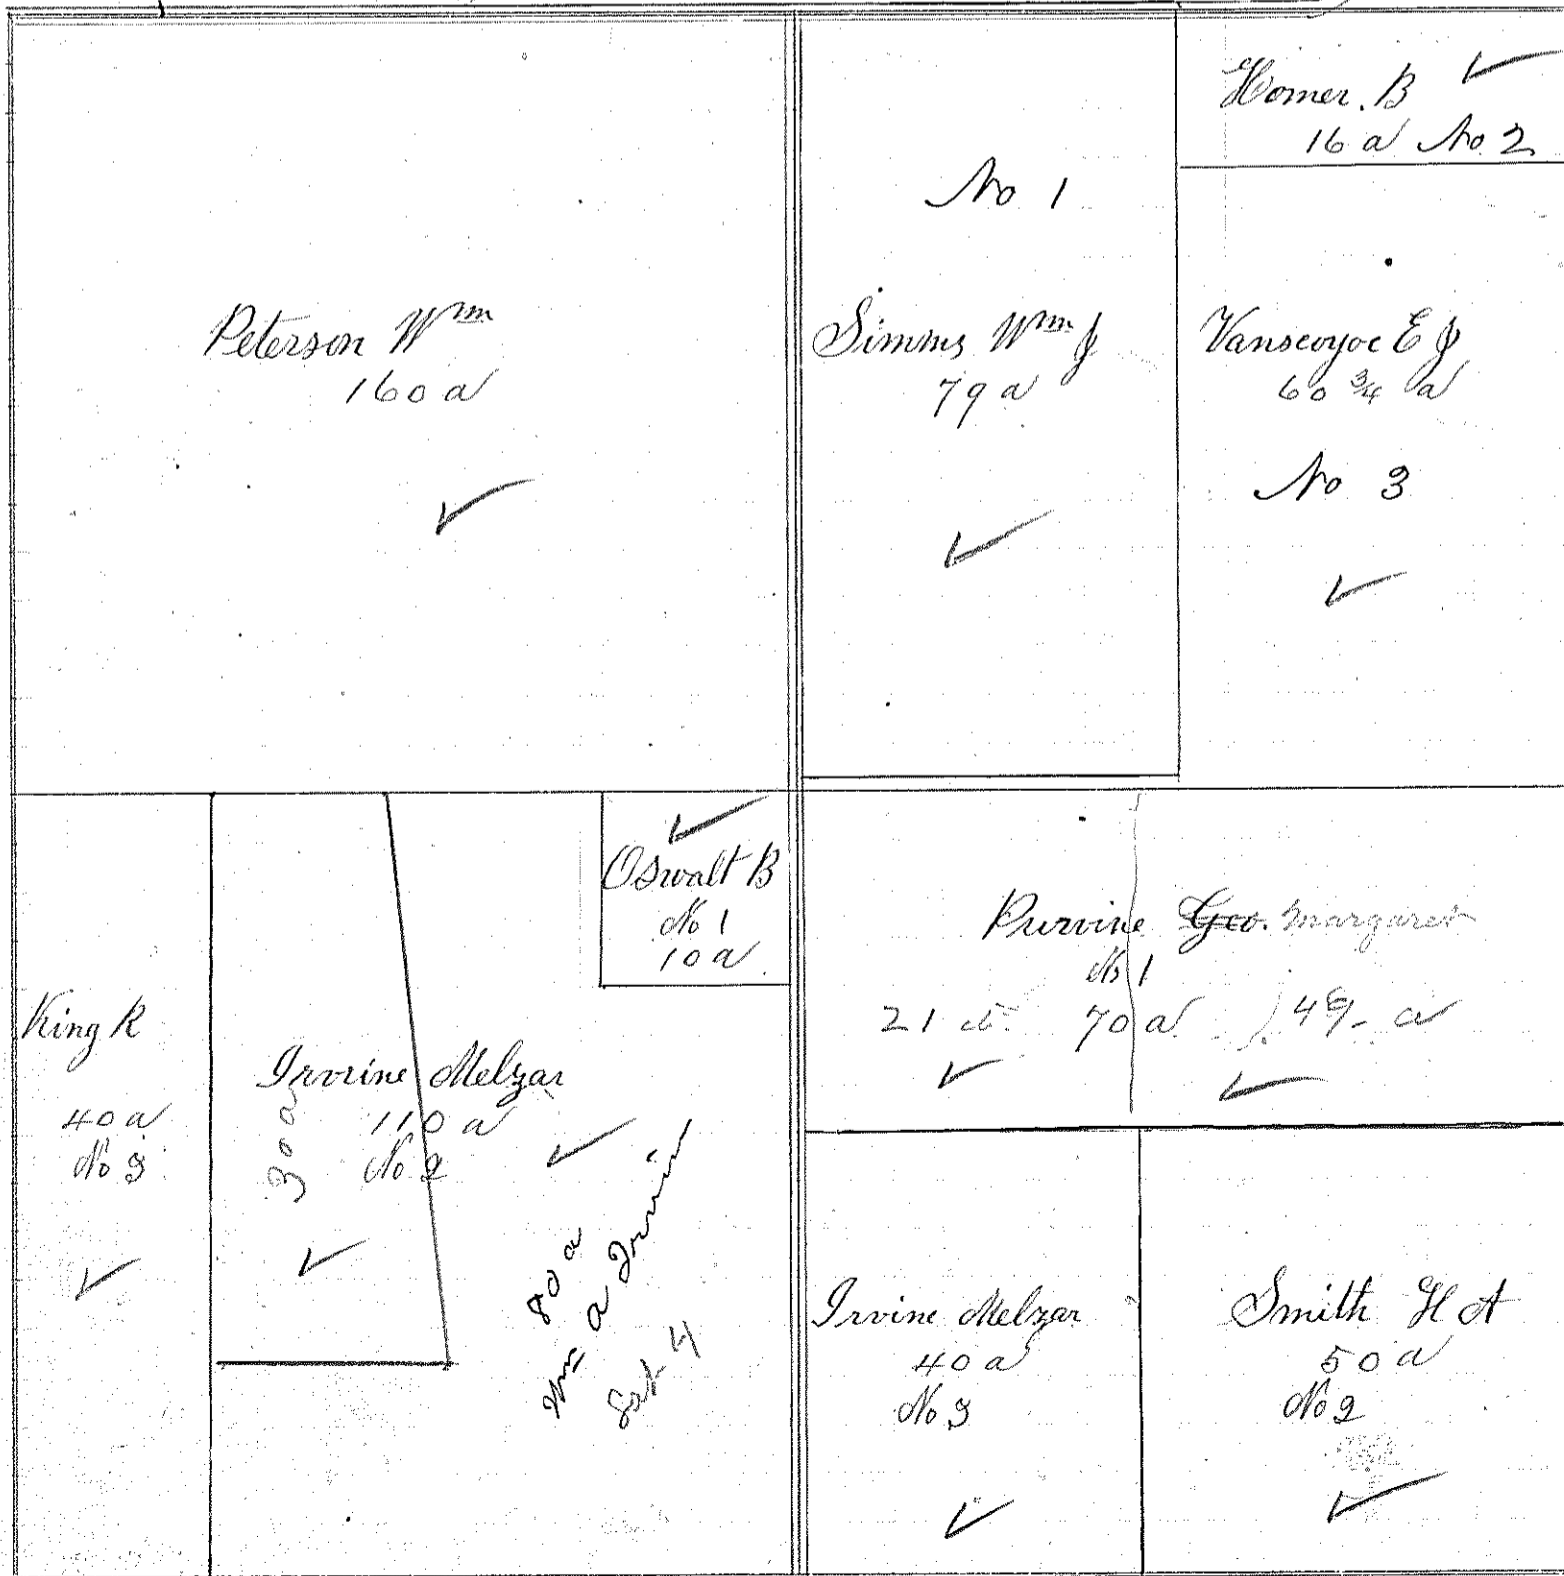 Peterson Wm
160 a
No 1
Simms Wm J
79 a
Homer. B
16 a No 2
Vanscoyoc E J
60 3/4 a
No 3
King R
40 a
No 3
Irvine Melzar
110 a
No 2
30 a
Oswalt B
No 1
10 a
80 a
Wm a Irvin
Purvine Geo. Margaret
No 1
21 a 70 a 49 a
Irvine Melzar
40 a
No 3
Smith H A
50 a
No 2